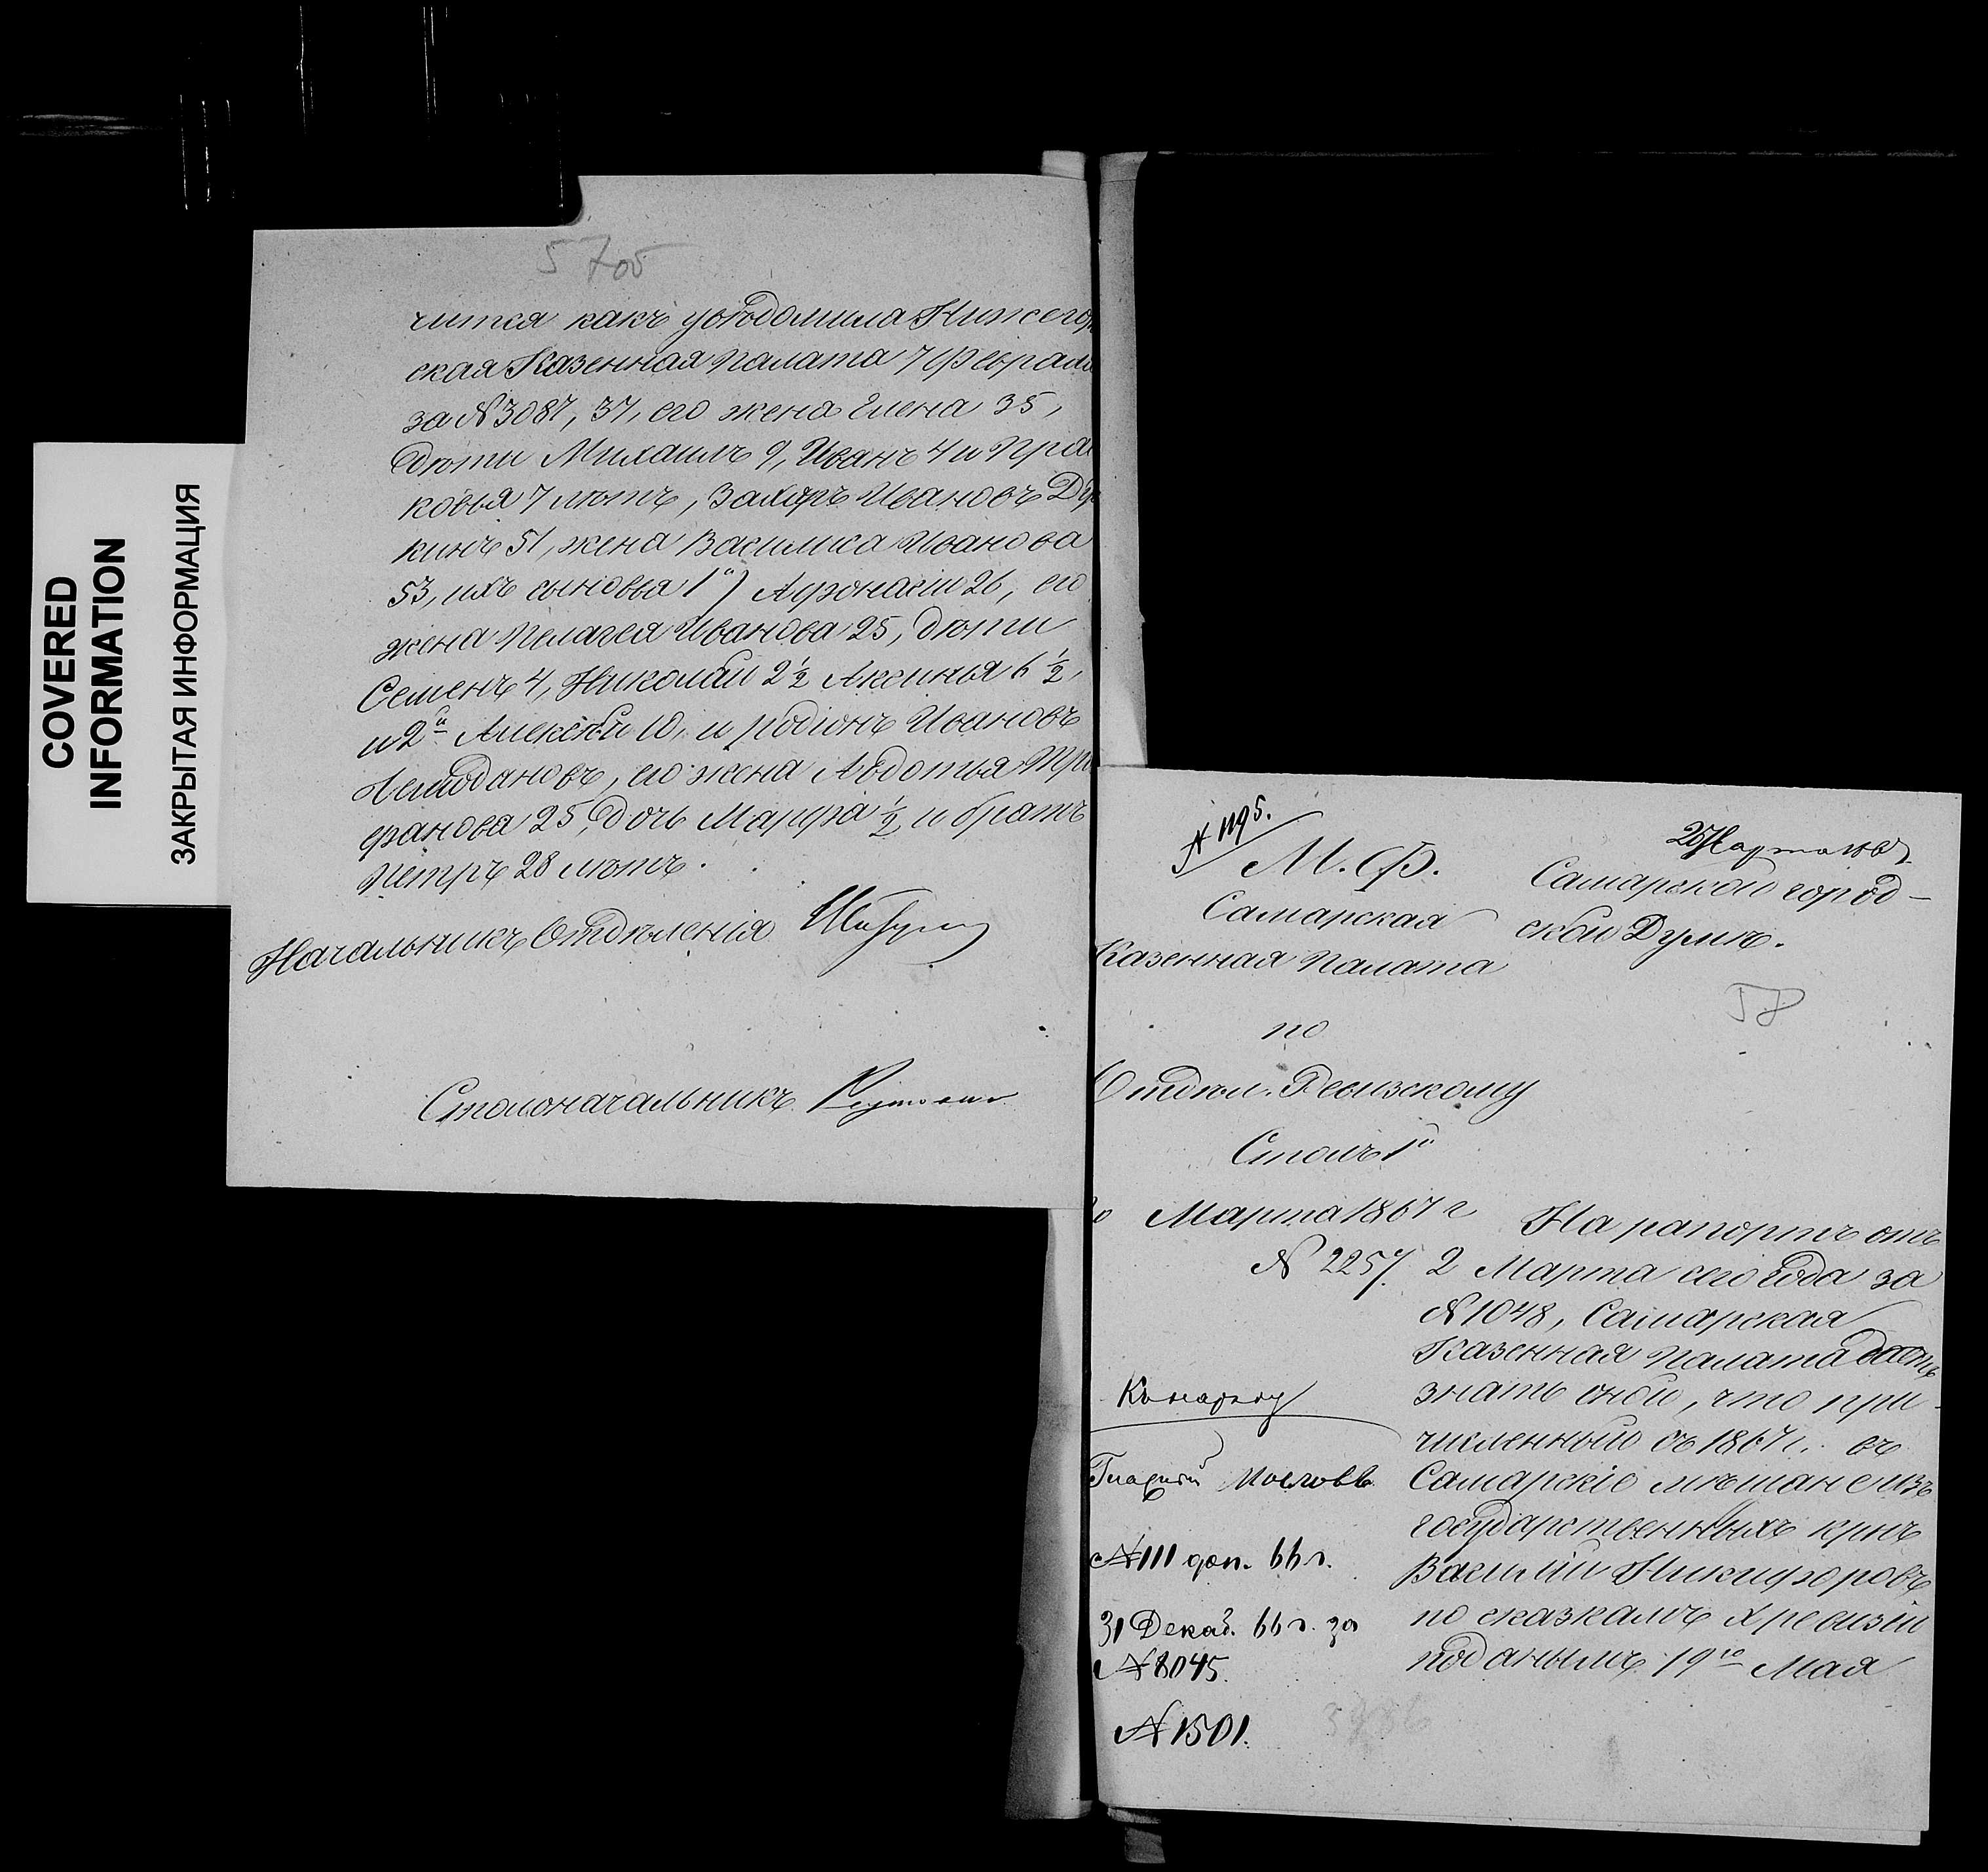 COVERED
INFORMATION
ЗАКРЫТАЯ ИНФОРМАЦИЯ
57об
чится какъ увѣдомила Нижегор
ская Казенная Палата 7 Февраля
за №3087, 37, его жена Елена 35,
дѣти Михаилъ 9, Иванъ 4 и Прас
ковья 7 лѣтъ, Захаръ Ивановъ
кинъ 51, жена Василиса Иванова
53, ихъ сыновья 1й) Афонасій 26, его
жена Пелагея Иванова 25, дѣти
Семенъ 4, Николай 2½ Аксинья 6½,
и 2й Алексѣй 10, и Родіонъ Ивановъ
Чемодановъ, его жена Авдотья Три
фанова 25, дочь Марфа ½ и братъ
Петръ 28 лѣтъ.
Начальникъ Отдѣленія
Столоначальникъ
№ 1195.
М. Ф.
Самарская
Казенная Палата
по
Отдѣл. Ревизскому
Столъ 1й
Марта 1867 г
№ 2257.
31 Декаб. 66 г. за
№ 8045.
№ 1501.
3986
Самарской город-
ской Думѣ.
58
На рапортъ отъ
2 Марта сего года за
№1048, Самарская
Казенная Палата даетъ
знать оной, что при-
численный съ 1867 г. въ
Самарскіе мѣщане изъ
государственныхъ крнъ
Василій Никифоровъ
по сказкамъ X ревизіи
поданымъ 19го Мая